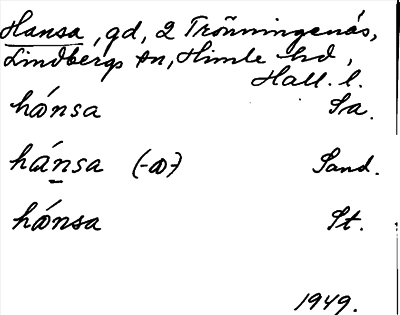 Hansa, gd, 2 Trönningenäs,
Lindbergs sn, Himle hd,
Hall. l.
hánsa Sa.
hánsa (-a-) Sand.
hánsa St.
1949.